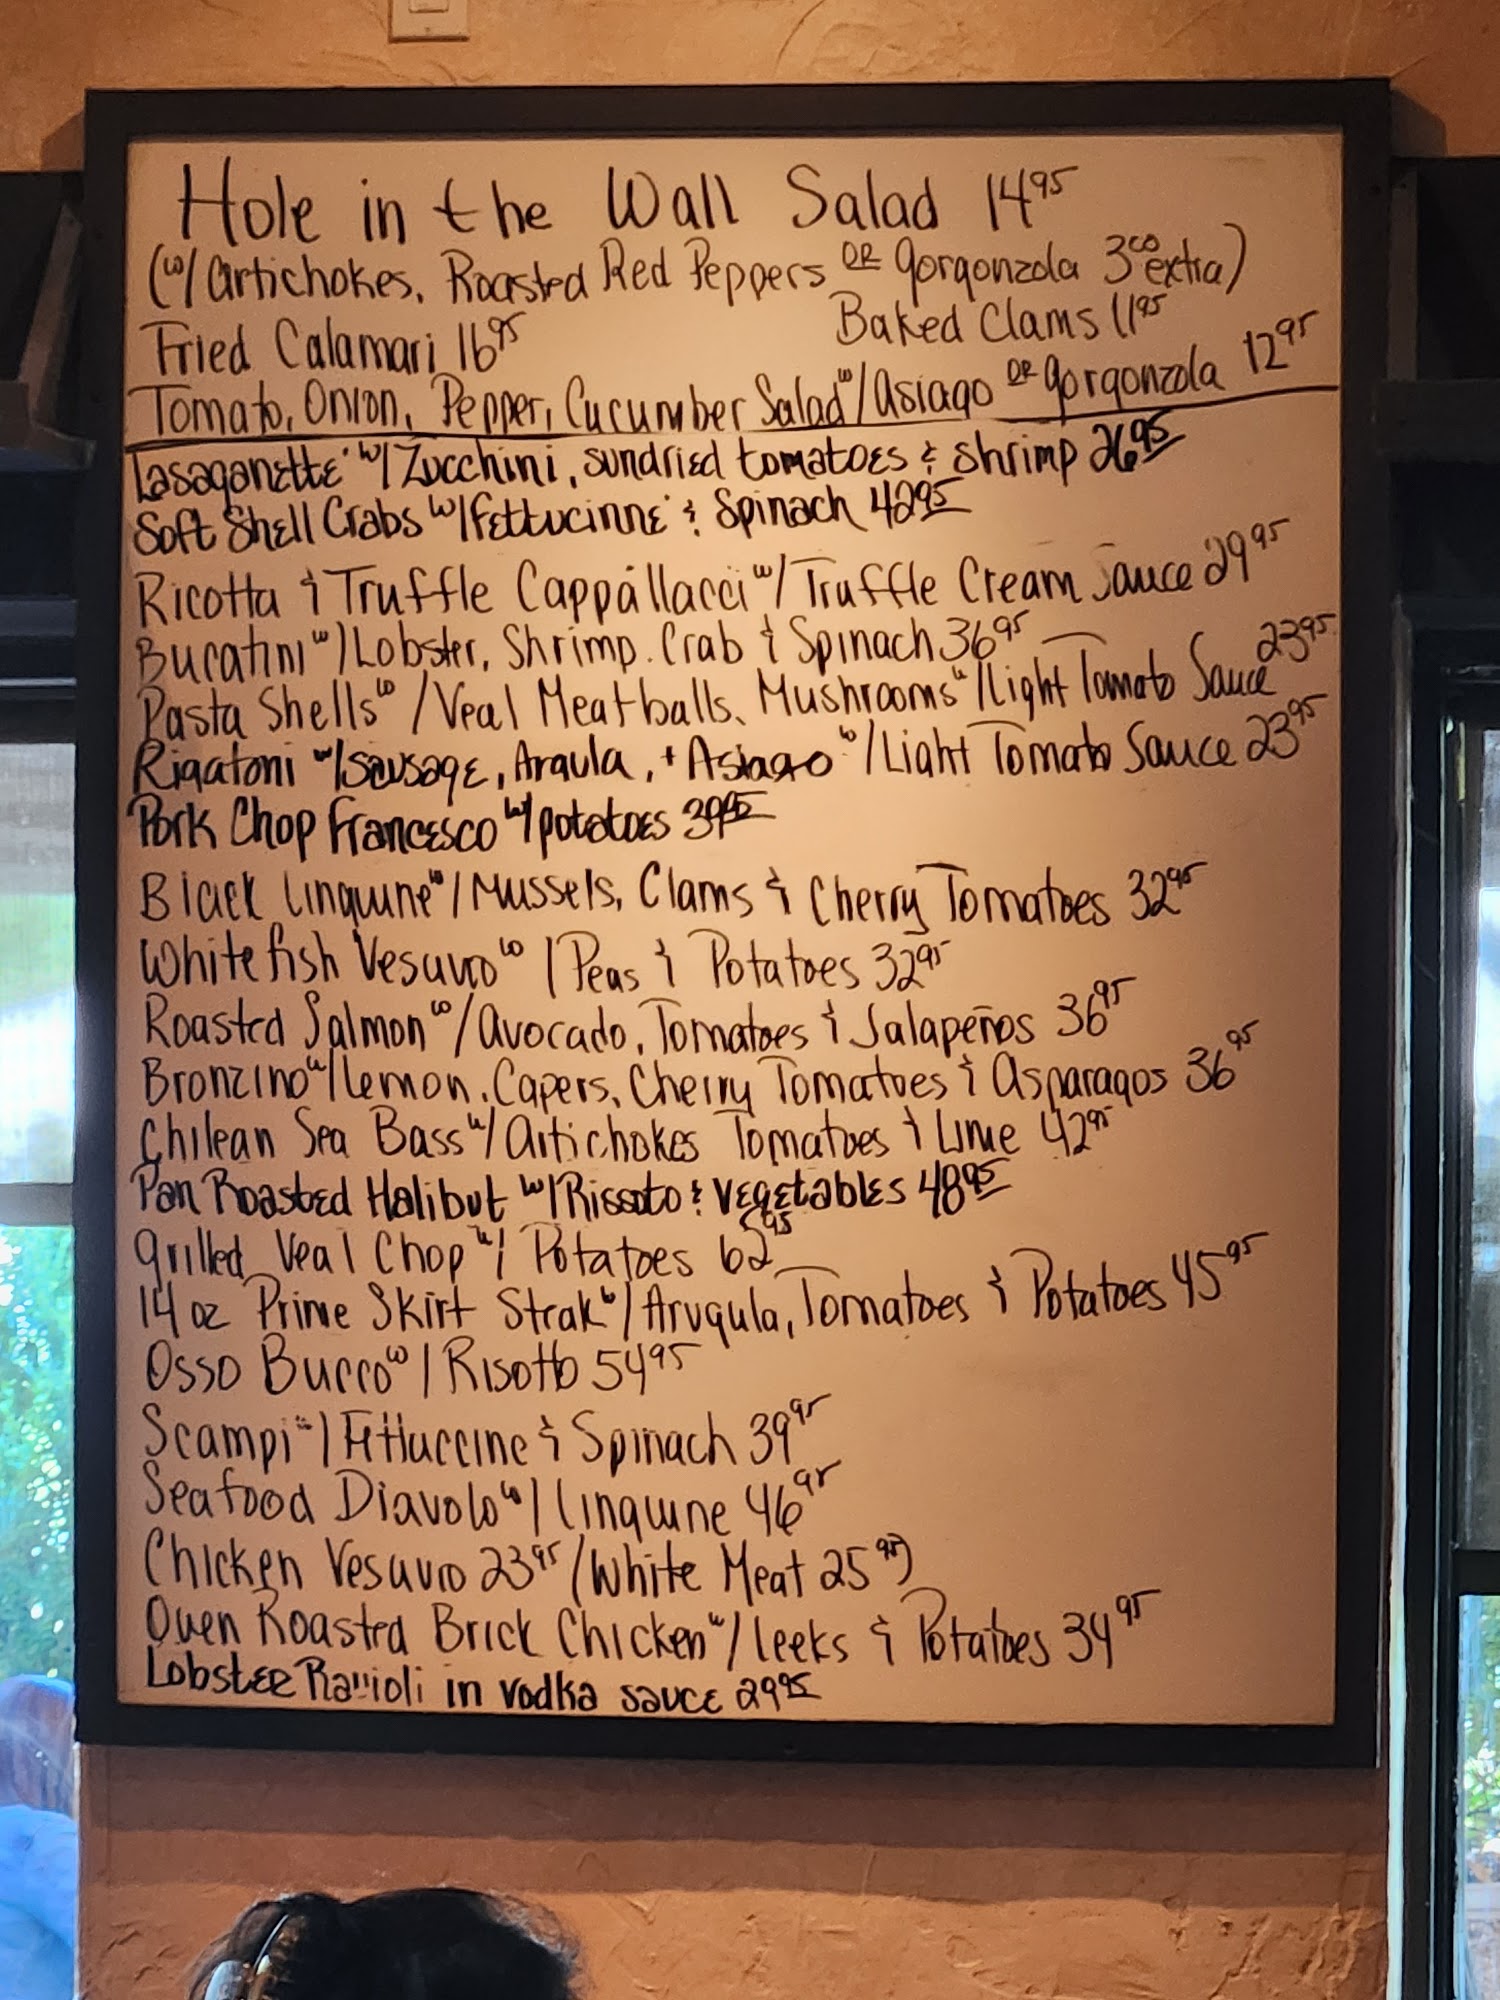 Hole in the Wall Salad 14 95
(w/ Artichokes, Roasted Red Peppers OR Gorgonzola 3 00 extra)
Fried Calamari 16 95 Baked Clams 11 95
Tomato, Onion, Pepper, Cucumber Salad w/ Asiago OR Gorgonzola 12 95
Lasaganette w/ Zucchini, sundried tomatoes & shrimp 26 95
Soft Shell Crabs w/ Fettucinne & Spinach 42 95
Ricotta & Truffle Cappallacci w/ Truffle Cream Sauce 29 95
Bucatini w/ Lobster, Shrimp. Crab & Spinach 36 95
Pasta Shells w/ Veal Meatballs, Mushrooms w/ Light Tomato Sauce 23 95
Rigatoni w/ Sausage, Araula, + Asiago w/ Light Tomato Sauce 23 95
Pork Chop Francesco w/ potatoes 39 95
Black Linguine w/ Mussels, Clams & Cherry Tomatoes 32 95
Whitefish Vesuvio w/ Peas & Potatoes 32 95
Roasted Salmon w/ Avocado, Tomatoes & Jalapeños 36 95
Bronzino w/ Lemon, Capers, Cherry Tomatoes & Asparagos 36 95
Chilean Sea Bass w/ Artichokes Tomatoes & Lime 42 95
Pan Roasted Halibut w/ Rissoto & vegetables 48 95
Grilled Veal Chop w/ Potatoes 62 95
14 oz Prime Skirt Steak w/ Arugula, Tomatoes & Potatoes 45 95
Osso Bucco w/ Risotto 54 95
Scampi w/ Fettuccine & Spinach 39 95
Seafood Diavolo w/ Linguine 46 95
Chicken Vesuvio 23 95 (White Meat 25 95)
Oven Roasted Brick Chicken w/ Leeks & Potatoes 34 95
Lobster Ravioli in vodka sauce 29 95